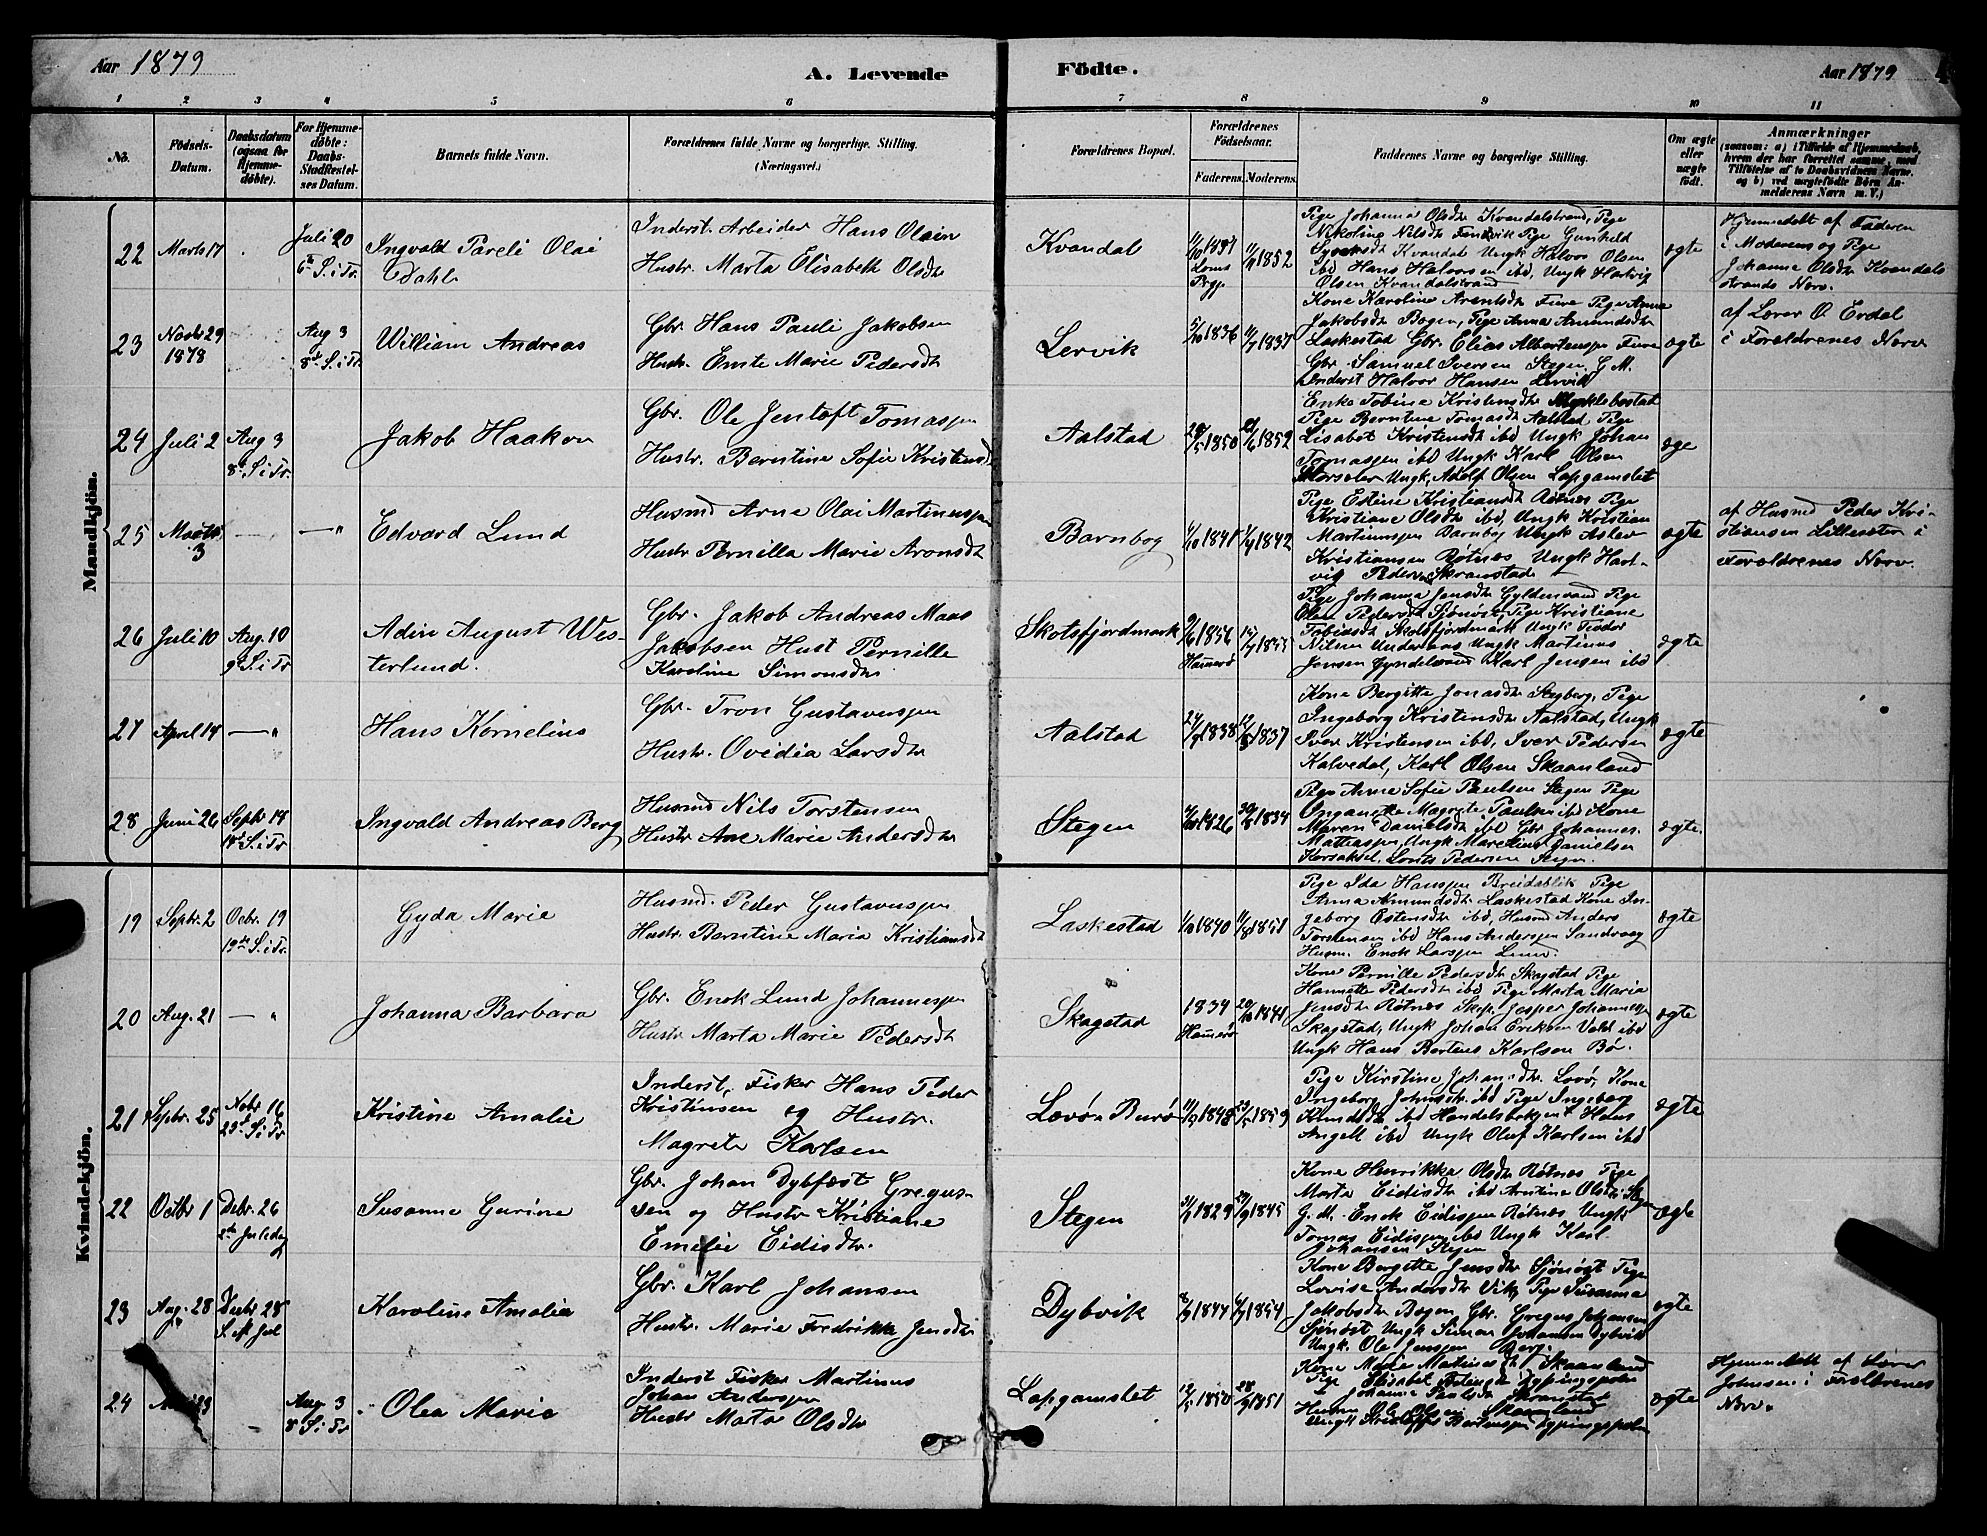 Aar 1879
A. Levende
Födte.
Aar 1879
1 2 3 4 5 6 7 8 9 10 11
No.
Födsels-
Datum.
Daabsdatum
(ogsaa for
Hjemme-
döbte).
For Hjemme-
döbte:
Daabs-
Stadfæstel-
ses Datum.
Barnets fulde Navn.
Forældrenes fulde Navne og borgerlige Stilling.
(Næringsvei.)
Forældrenes Bopæl.
Forældrenes
Födselsaar.
Faderens. Moderens.
Faddernes Navne og borgerlige Stilling.
Om ægte
eller
uægte
født.
Anmærkninger
(saasom: a) i Tilfælde af Hjemmedaab,
hvem der har forrettet samme, med
Tilføielse af to Daabsvidners Navne,
og b) ved uægtefödte Börn An-
melderens Navn m. V.)
Mandkjön.
22
Marts 17
Juli 20
6te S. i Tr.
Ingvald Pareli Olai
Dahl
Inderst. Arbeider Hans Olsin
Hustr. Marta Elisabeth Olsdtr
Kvandal
1852
Pige Johanna Olsdtr Kvandalstrand, Pige
Nikoline Nilsdtr Pige Gunhild
Kvandal Ungk Halvor Olsen
ibd, Hans Halvorsen ibd, Ungk Hartvig
Olsen Kvandalstrand
ægte
Hjemmedøbt af Faderen
i Moderens og Pige
Johanna Olsdtr Kvandal-
strands Nærv.
23
Novbr 29
1878
Aug 3
8de S. i Tr.
William Andreas
Gbr. Hans Pauli Jakobsen
Hustr. Ernte Marie Pedersdtr
Lervik
5/10 1836
1837
Kone Karoline Arentsdtr Fure Pige Anna
Jakobsdtr Bogen, Pige Anna Amundsdtr
Laskestad Gbr. Elias Albertsen Fure
Gbr. Samuel Iversen Stegen G. M.
Inderst Halvor Hansen Lervik
ægte
af Lærer O. Evdal
i Forældrenes Nærv
24
Juli 2
Aug 3
8de S. i Tr.
Jakob Haakon
Gbr. Ole Jentoft Tomassen
Hustr. Berntine Sofie Kristensd
Aalstad
1850
1852
Enke Tobine Kristensdtr Myklebostad
Pige Berntine Tomasdtr Aalstad Pige
Lisabet Kristensdtr ibd Ungk Johan
Tomassen ibd Ungk Karl Olsen
Ungk. Adolf Olsen Lapgamslet
æge
25
Marts
3
— "
Edvard Lund
Husmd Arne Olai Martinussen
Hustr Pernilla Marie Aronsdtr
Barnbog
1/4 1842
Pige Estine Kristiansdtr Røtnes Pige
Kristiane Olsdtr ibd, Ungk Kristian
Martinussen Barnbog Ungk Aslev
Kristiansen Røtnes Ungk Hart-
vig Pedersen Skranstad
ægte
af Husmd Peder Kri-
stiansen Lilleester i
Forældrenes Nærv.
26
Juli 10
Aug. 10
9de S. i Tr
Adin August Wes-
terlund.
Gbr. Jakob Andreas Maas
Jakobsen Hust Pernille
Karoline Simonsdtr
Skotsfjordmark
9/6 1856
Hamerø
Pige Johanna Jensdtr Gyldensand Pige
Olea Pedersdtr Sjønøst Pige Kristiane
Tobiasdtr Skotsfjordmark Ungk Teodor
Nilsen Ungk Martinus
Jensen Karl Jensen ibd
ægte
27
April 14
— "
Hans Kornelius
Gbr. Tron Gustavussen
Hustr. Ovidia Larsdtr
Aalstad
1838
1837
Kone Bergitte Jonasdtr Stegberg, Pige
Ingeborg Kristensdtr Aalstad, Ungk
Iver Kristensen ibd, Iver Pedersen
Kalvedal, Karl Olsen Skaanland
ægte
28
Juni 26
Septr 14
14de S. i Tr
Ingvald Andreas Berg
Husmd Nils Torstensen
Hustr Ane Marie Andersdtr
Stegen
1826
30/8 1834
Pige Anne Sofie Paulsen Stegen Pige
Magrete Paulsen ibd Kone
Maren Danielsdtr ibd Gbr Johannes
Mattiassen, Ungk Marelius Danielsen
Korsaksel. Lorits Pedersen Stegen.
ægte.
Kvindekjön.
19
Septr. 2
Ocbr. 19
19de S. i Tr.
Gyda Marie
Husmd. Peder Gustavussen
Hustr. Berntine Maria Kristiansdtr
Laskestad
1840
11/8 1851
Pige Ida Hanssen Breidablik Pige
Anna Amundsdtr Laskestad Kone In-
geborg Østensdtr ibd, Husmd Anders
Torstensen ibd Hans Anderssen Sandvaag
Husm. Enok Larssen Lund.
ægte
20
Aug. 21
— "
Johanna Barbara
Gbr. Enok Lund Johannessen
Hustr Marta Marie Pedersdtr
Skagstad
1834
Hamerø
1841
Kone Pernille Pedersdtr Skagstad Pige
Hannette Pedersdtr ibd Pige Marta Maria
Jensdtr Røtnes Skip. Jasper Johannessen
Skagstad, Ungk Johan Eriksen Vold ibd
Ungk Hans Bertens Karlsen Bø.
ægte
21
Septbr. 25
Nobr 16
23de S. i Tr
Kristine Amalie
Inderst, Fisker Hans Peder
Kristensen og Hustr.
Magrete Karlsen
Løvø Burø
1848
1859
Pige Kirstine Johansdtr Løvø, Kone
Ingeborg Johnsdtr ibd Pige Ingeborg
Knudsdtr ibd Handelsbokent Hans
Angell ibd Ungk Oluf Karlsen ibd
ægte
22
Octbr 1
Debr. 26
2den Juledag
Susanne Gurine
Gbr. Johan Dybfest Gregus-
sen og Hustr Kristiane
Emelie Eidisdtr.
Stegen
1829
1845
Kone Henrikka Olsdtr Røtnes Pige
Marta Eidisdtr ibd Arntine Olsdtr Stegen
G. M. Enok Eidissen Røtnes Ungk
Tomas Eidissen ibd Ungk Karl
Johansen Stegen
ægte
23
Aug. 28
Decbr 28
S. ef Jul
Karoline Amalia
Gbr. Karl Johansen
Hustr. Marie Fredrikke Jensdtr
Dybvik
1844
1854
Kone Bergitte Jensdtr Sjønøst Pige
Lovise Andersdtr Vik, Pige Susanna
Jakobsdtr Bogen, Gbr. Gregus Johansen
Sjønøst Ungk Simon Johansen Dybvik
Ungk. Ole Jenssen Berg.
ægte
24
Aug. 3
8 S. i Tr
Olea Marie
Inderst Fisker Martinus
Johan Anderssen
Hustr Marta Olsdtr
Lapgamslet
1850
1851
Kone Marie Martinesdtr Skaanland
Pige Elisabet
Johanna Paulsdtr Skranstad
Husm Ole Olsen Skaanland
Ungk Kristoffer Berntssen
ægte
Hjemmedøbt af Lærer
Johnsen i Forældrenes
Nærv.